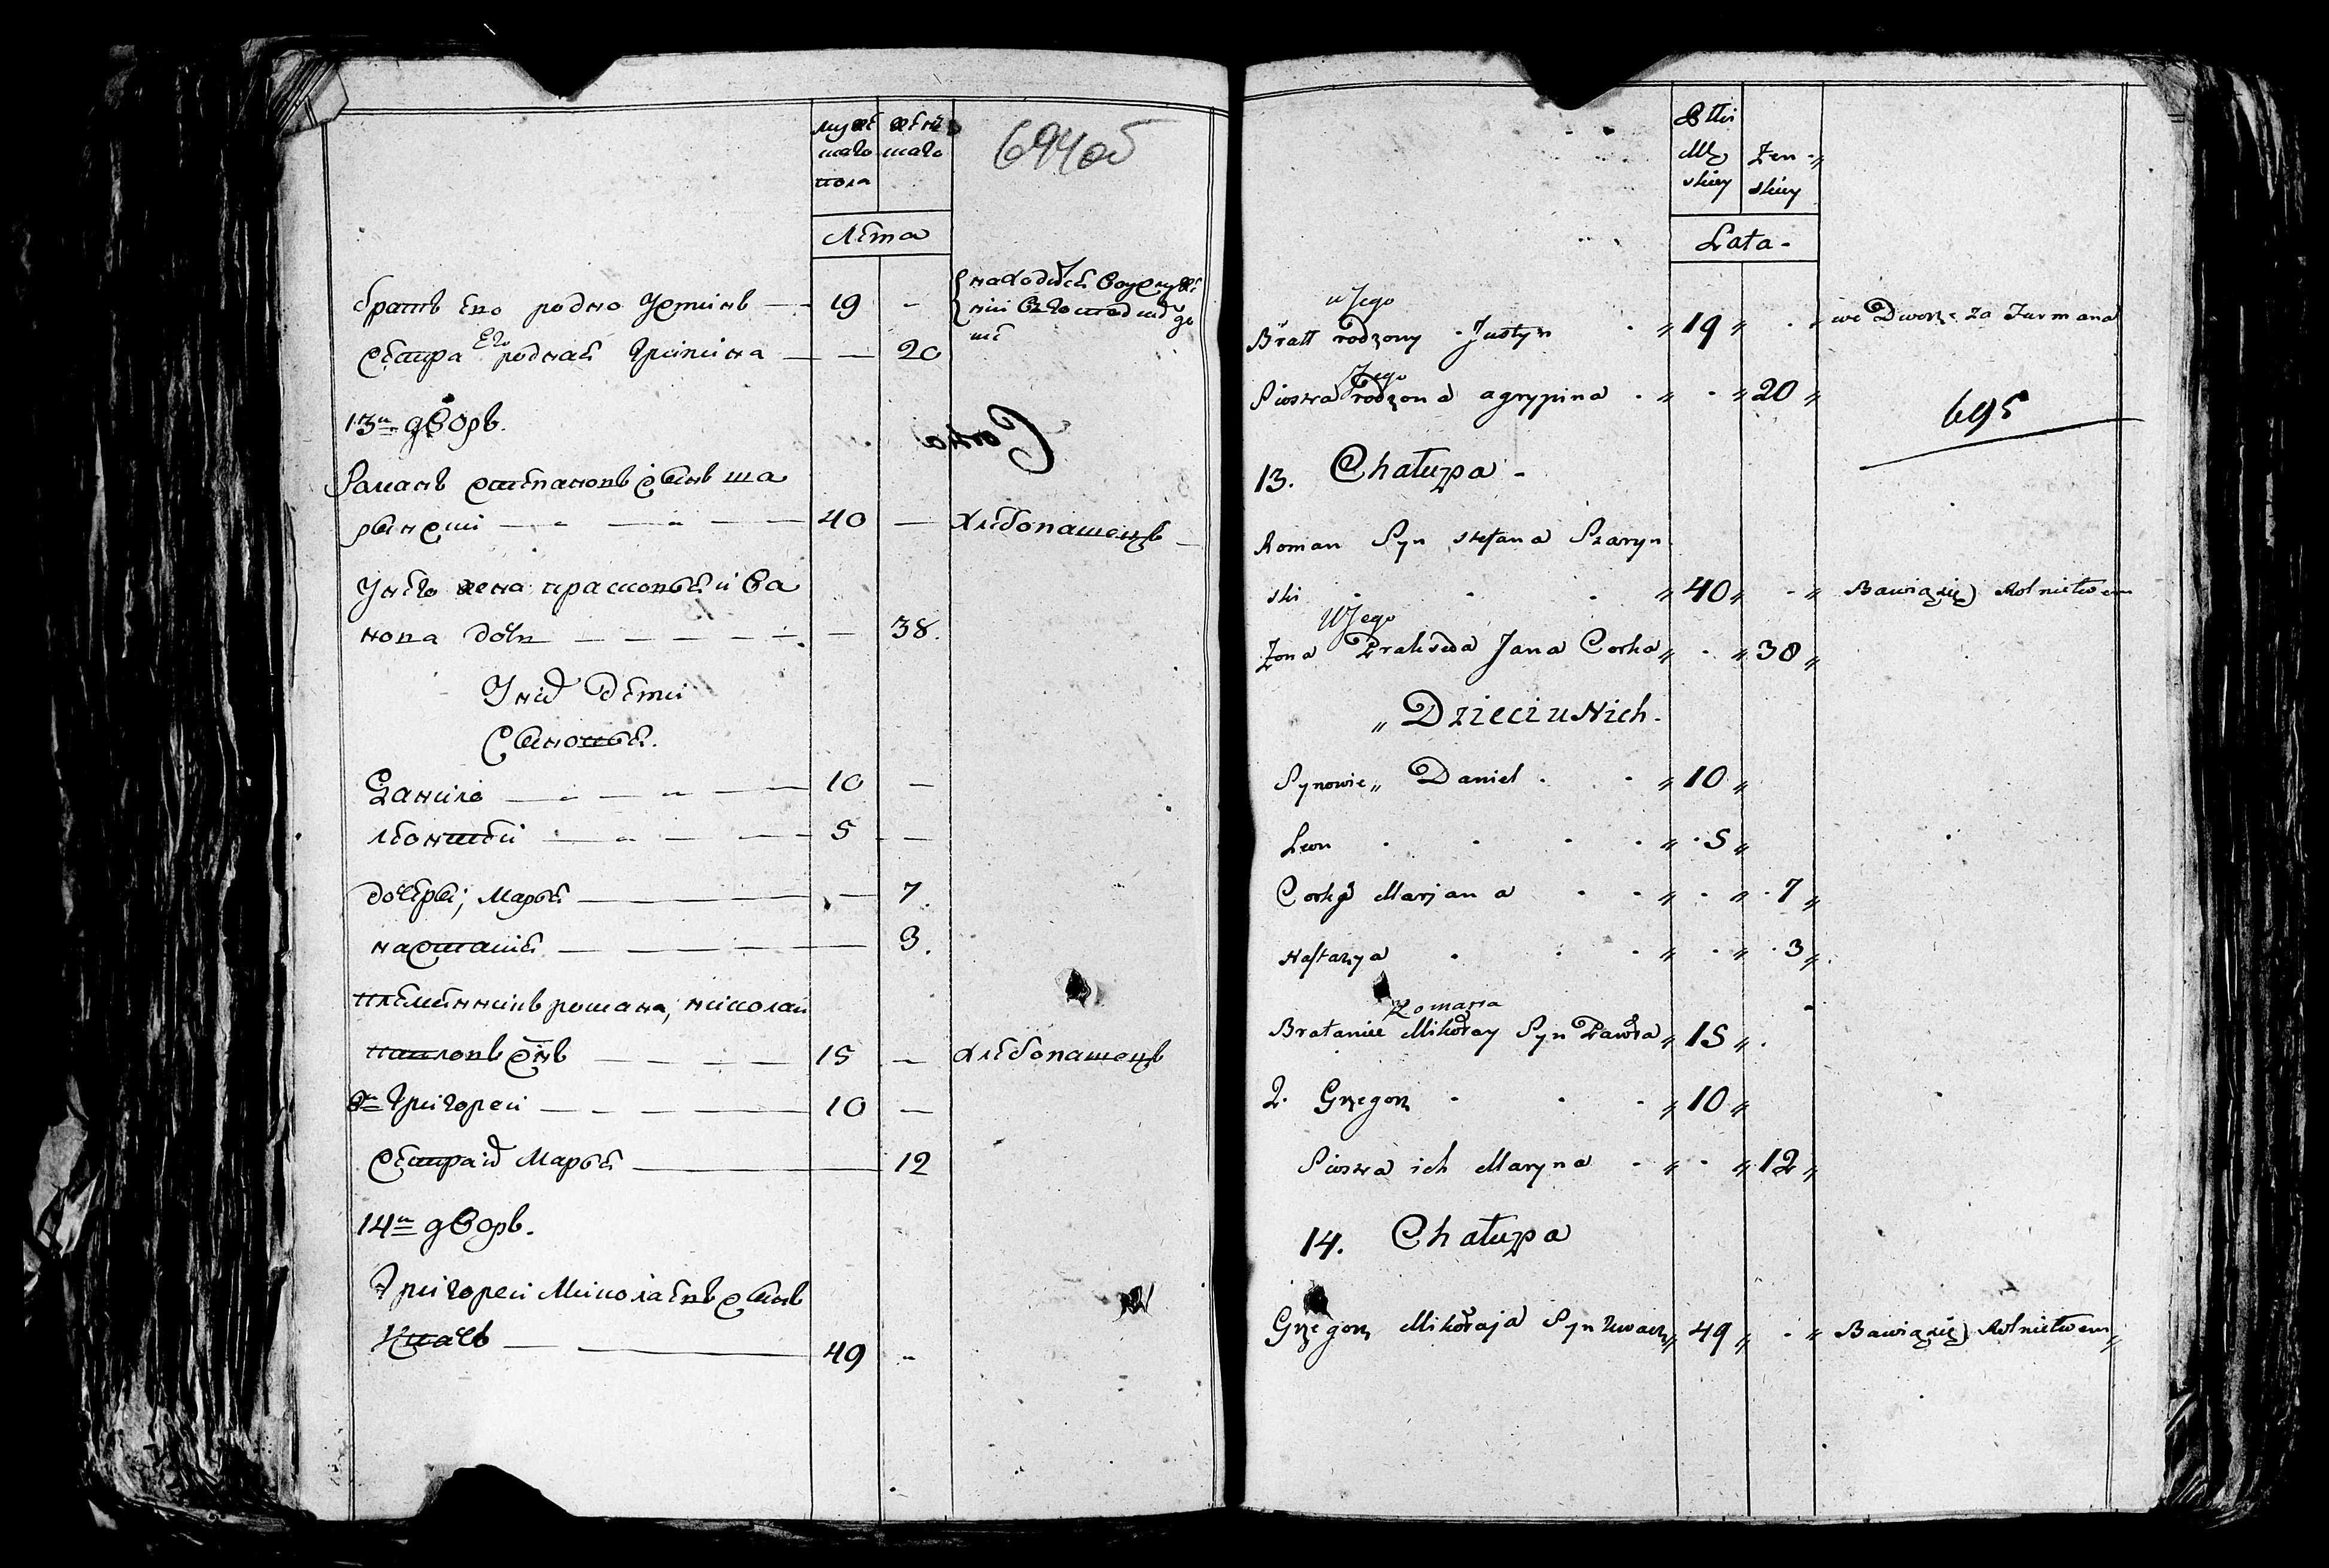 мужеска пола
женска
694об
Лѣта
братъ его родно Устинъ — 19 -
находится во служе
нии
сестра его родная Грипина — — 20
13й дворъ.
Раманъ Степановъ сынъ Ша
рынски — — — 40 — хлебопашецъ
У него жена прасковья Ива
нова дочь — — — — 38.
У них дети
Сыновья.
Данило — — — 10 —
Леонтей — — — 5 —
дочери; Марья — — 7.
настасия — — 3.
племянникъ романа, николай
павловъ сынъ — — — 15 — хлебопашецъ
2й Григорей — — — 10 —
Сестра их Марья — — 12
14й дворъ.
Григорей Миколаевъ сынъ
Квачь — — 49 -
Płci
Mę
skiey
Żen
skiey
Lata -
u Jego
Bratt rodzony Justyn „ 19 „ we Dworze za Furmana
Jego
Siostra rodzona agrypina „ „ 20 „
695
13. Chałupa -
Roman Syn Stefana Szaryn
ski „ 40 „ „ Bawiąsię Rolnictwem
U Jego
Żona Prakseda Jana Corka „ „ 38 „
„ Dzieci u Nich.
Synowie „ Daniel „ 10 „
Leon „ 5 „
Corka Marjana „ „ 7 „
Nastazya „ „ 3 „
Romana
Brataniec Mikołay Syn Pawła „ 15 „
2. Grzegorz „ 10 „
Siostra ich Maryna „ „ 12 „
14. Chałupa
Grzegorz Mikołaja Syn Kwacz „ 49 „ „ Bawiąsię Rolnictwem „